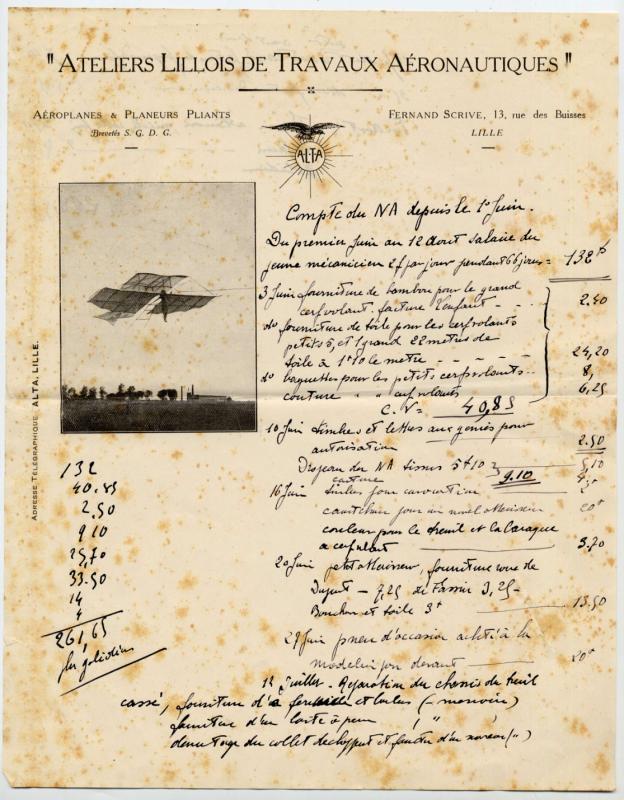 "ATELIERS LILLOIS DE TRAVAUX AÉRONAUTIQUES"
AÉROPLANES & PLANEURS PLIANTS
Brevetés S. G. D. G.
FERNAND SCRIVE, 13, rue des Buisses
LILLE
ALTA
ADRESSE TÉLÉGRAPHIQUE ALTA, LILLE.
Compte du NA depuis le 1er Juin.
Du premier Juin au 12 Aout salaire du
jeune mécanicien 2f par jour pendant 66 jours = 132f
3 Juin fourniture de bambou pour le grand
cerfvolant. facture 2,40
do fourniture de toile pour les cerfvolants
petits 5, et 1 grand 22 mètres de
toile à 1f10 le metre 24,20
do baguettes pour les petits cerfvolants 8,
couture " " cerfvolants 6,25
C. V = 40,85
10 Juin timbres et lettres aux pour
autorisation 2.50
Drapeau du NA tissus 5f10 5,10
couture 9.10 4,
16 Juin pour
pour un 20f
couleur pour le treuil et la baraque
a cerfvolant 5.70
20 Juin fourniture de
7,25 de 3,25
et toile 3f 13.50
29 Juin pneu d'occasion acheté à la
devant 20f
12 Juillet. Réparation du chassis du treuil
cassé, fourniture d' et (memoire)
fourniture d'un " "
du collet et d'un nouveau (")
132
40.85
2.50
9.10
25,70
33.50
14
4
261,65